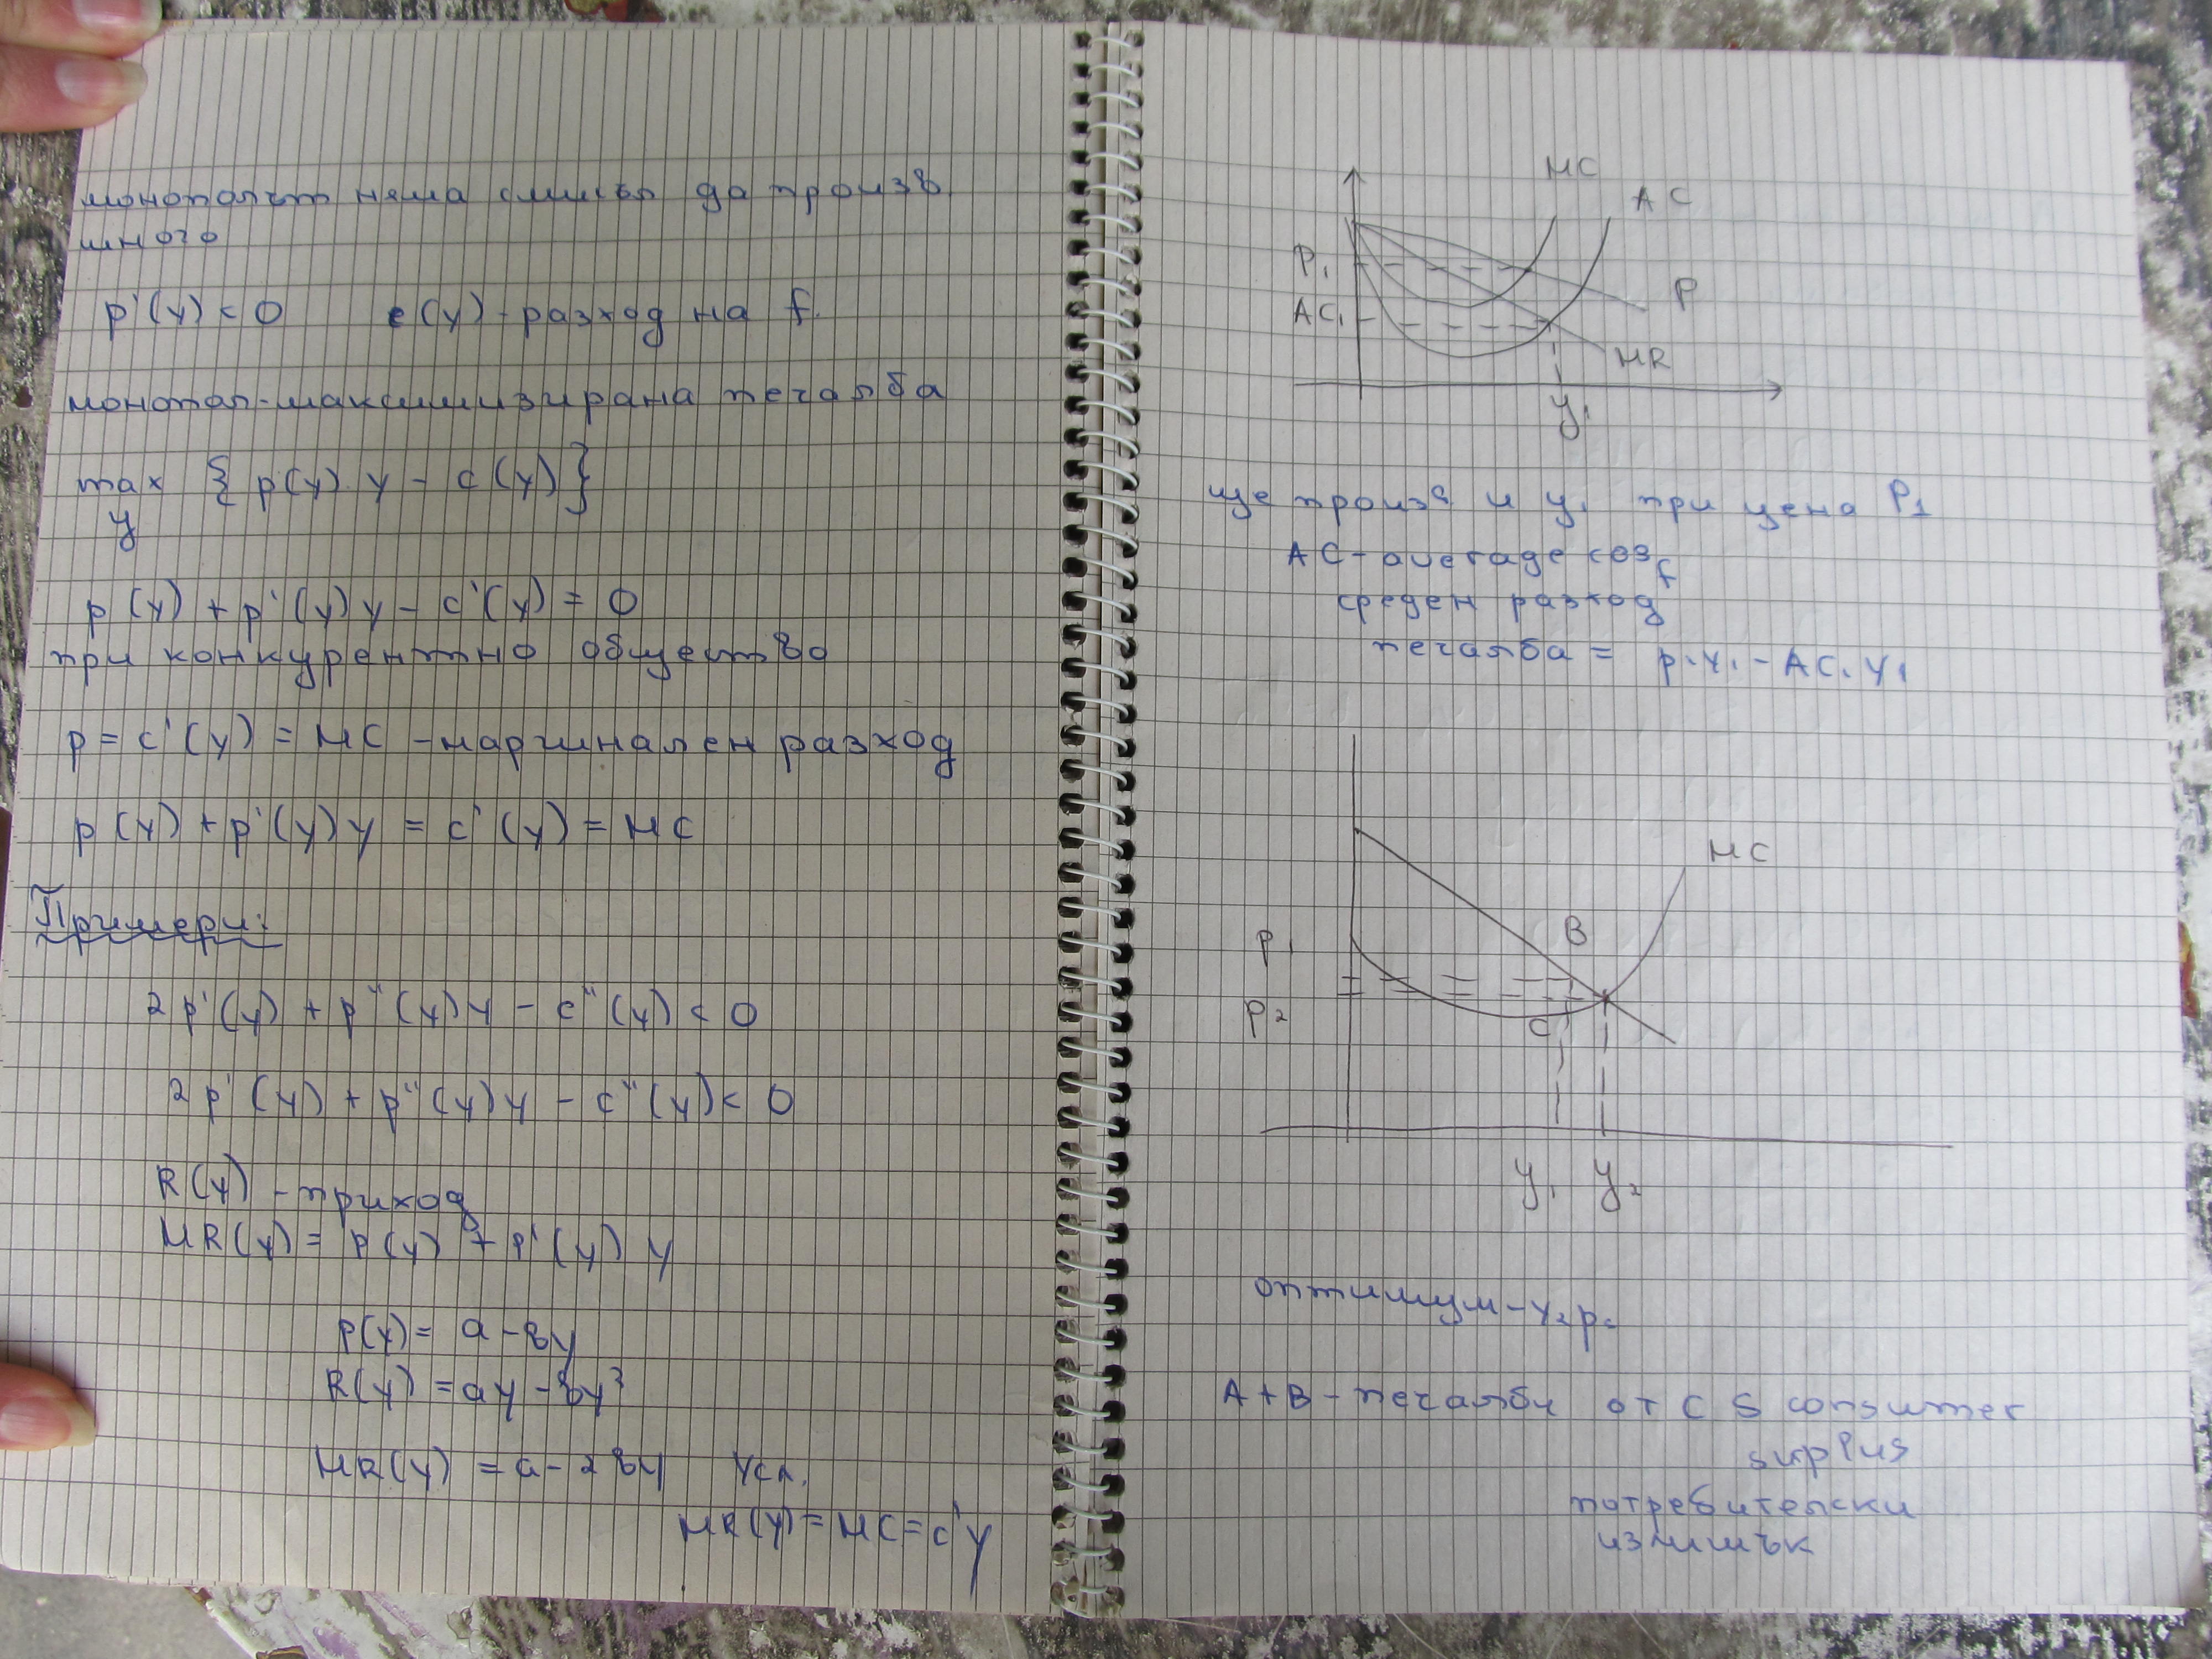 монополът няма смисъл да произв.
много
p'(y) < 0 c(y) - разход на f.
монопол - максимизирана печалба
max {p(y).y - c(y)}
y
p(y) + p'(y)y - c'(y) = 0
при конкурентно общество
p = c'(y) = MC - маргинален разход
p(y) + p'(y)y = c'(y) = MC
Примери:
2p'(y) + p''(y)y - c''(y) < 0
2p'(y) + p''(y)y - c''(y) < 0
R(y) - приход
MR(y) = p(y) + p'(y)y
p(y) = a - вy
R(y) = ay - вy²
MR(y) = a - 2вy усл.
MR(y) = MC = c'y
MC
AC
P₁
P
AC₁
MR
y₁
ще произв. и y₁ при цена P₁
AC - average cost
среден разход
печалба = p₁y₁ - AC₁y₁
MC
B
P₁
P₂
C
y₁ y₂
оптимум - y₂p₂
A + B - печалби от CS consumer
surplus
потребителски
излишък